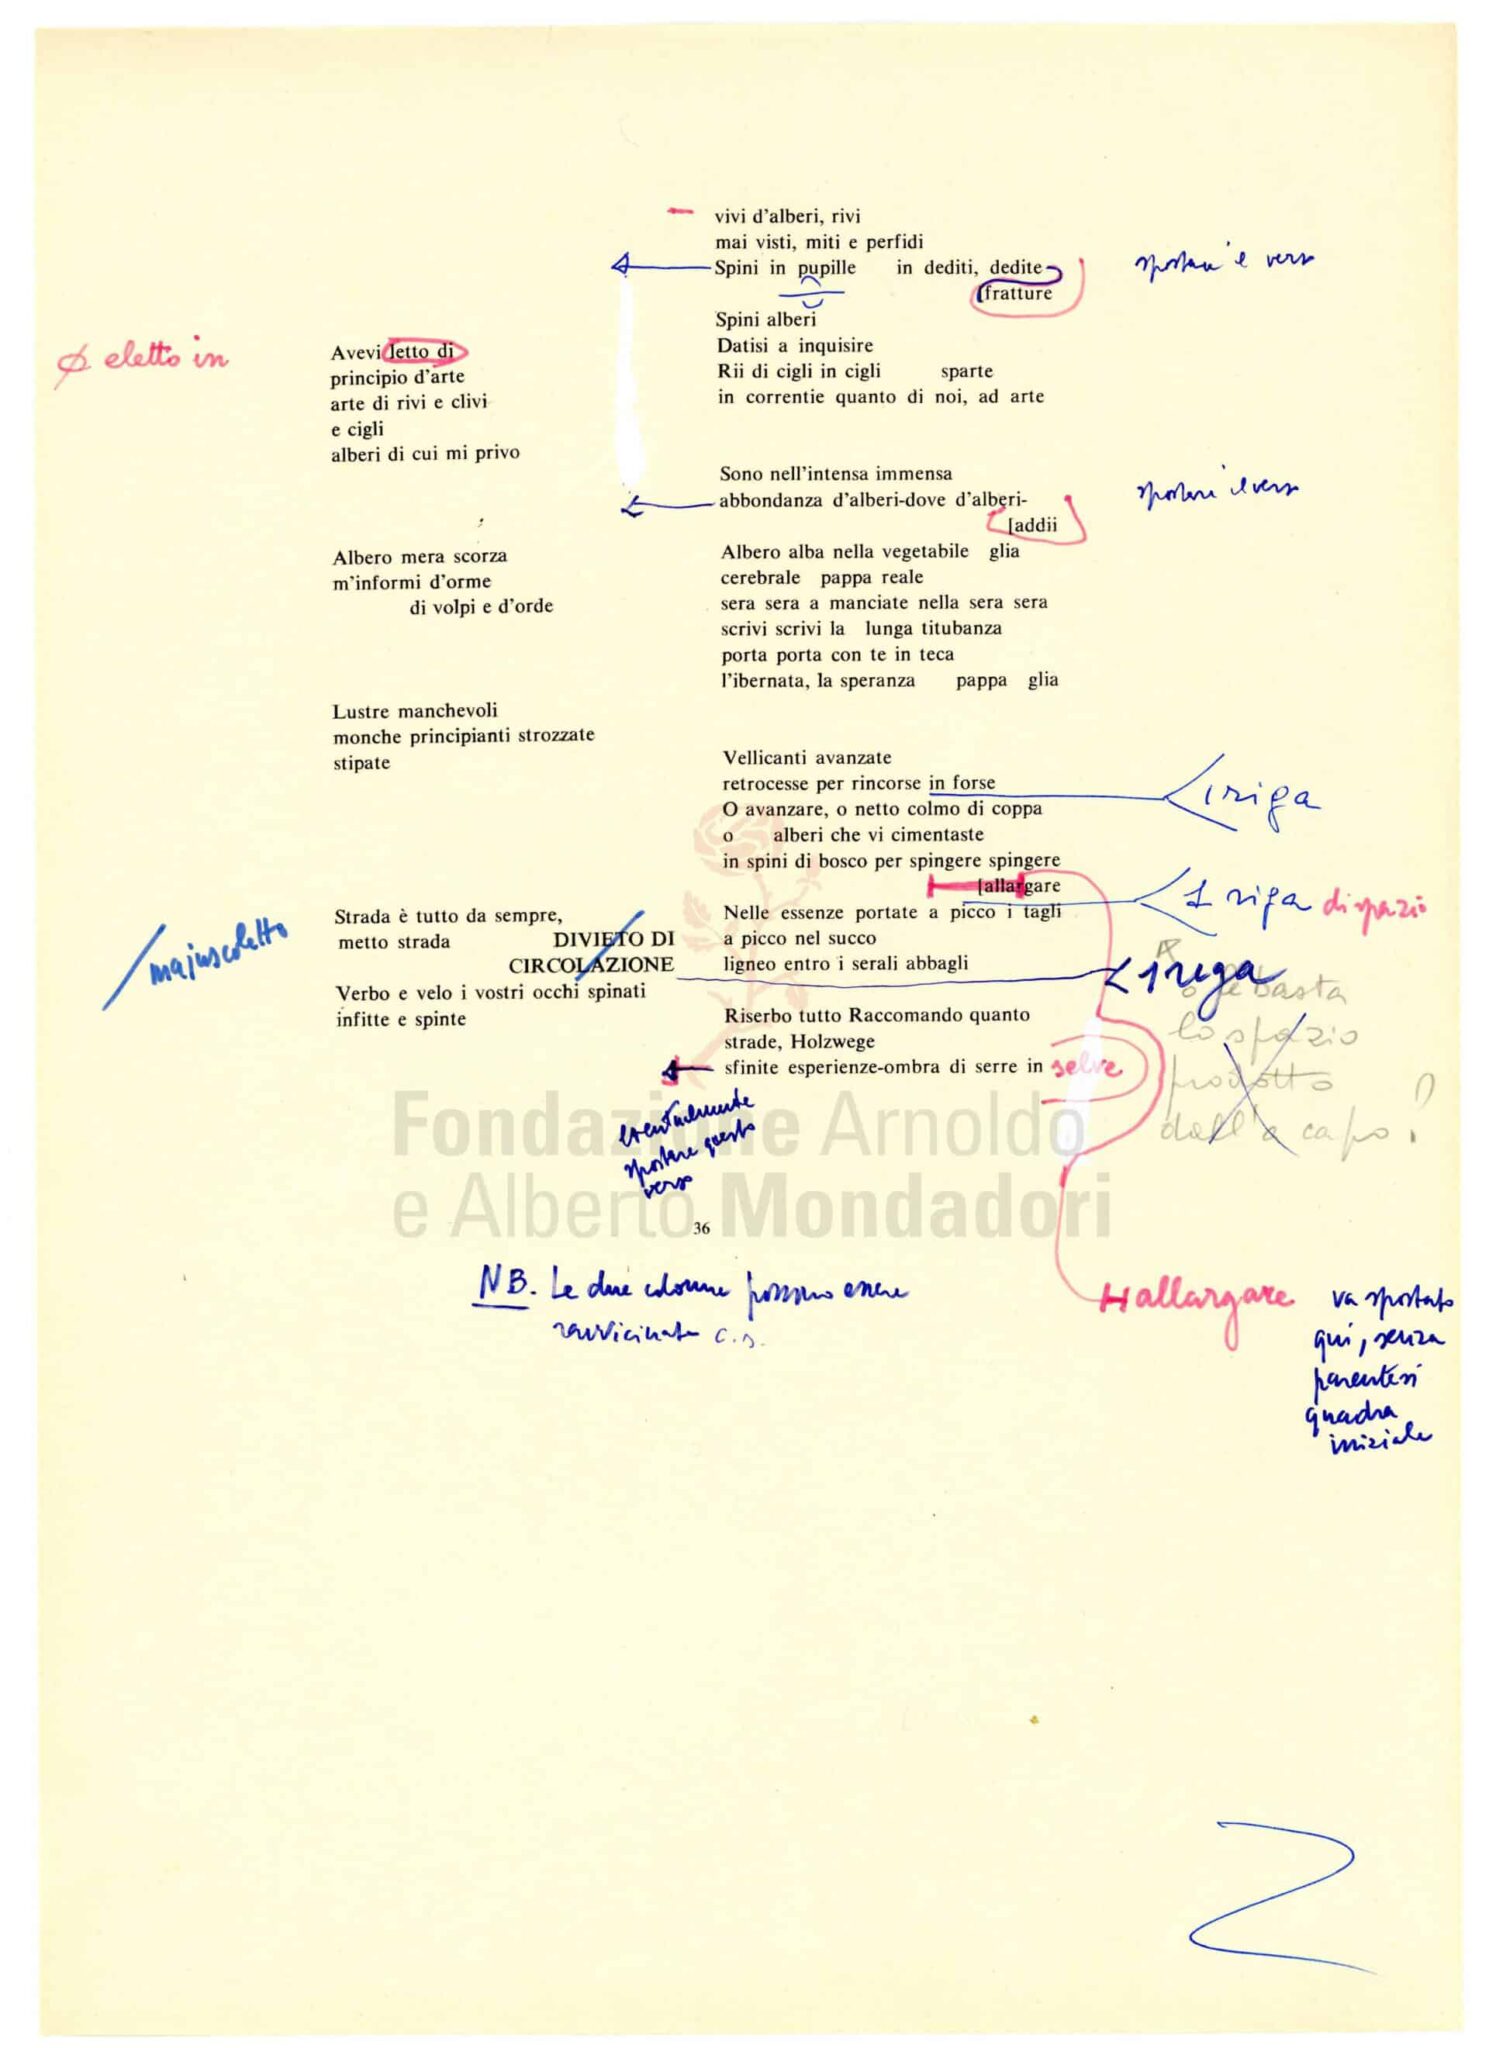 vivi d'alberi, rivi
mai visti, miti e perfidi
Spini in pupille in dediti, dedite
[fratture
spostare il verso
Spini alberi
Datisi a inquisire
Rii di cigli in cigli sparte
in correntie quanto di noi, ad arte
eletto in
Avevi letto di
principio d'arte
arte di rivi e clivi
e cigli
alberi di cui mi privo
Sono nell'intensa immensa
abbondanza d'alberi-dove d'alberi-
[addii
spostare il verso
Albero mera scorza
m'informi d'orme
di volpi e d'orde
Albero alba nella vegetabile glia
cerebrale pappa reale
sera sera a manciate nella sera sera
scrivi scrivi la lunga titubanza
porta porta con te in teca
l'ibernata, la speranza pappa glia
Lustre manchevoli
monche principianti strozzate
stipate
Vellicanti avanzate
retrocesse per rincorse in forse
1 riga
O avanzare, o netto colmo di coppa
o alberi che vi cimentaste
in spini di bosco per spingere spingere
[allargare
1 riga di spazio
Nelle essenze portate a picco i tagli
a picco nel succo
ligneo entro i serali abbagli
1 riga
o basta
lo spazio
prodotto
dall'a capo?
majuscoletto
Strada è tutto da sempre,
metto strada DIVIETO DI
CIRCOLAZIONE
Verbo e velo i vostri occhi spinati
infitte e spinte
Riserbo tutto Raccomando quanto
strade, Holzwege
sfinite esperienze-ombra di serre in selve
eventualmente
spostare questo
verso
Fondazione Arnoldo
e Alberto Mondadori
36
NB. Le due colonne possono essere
ravvicinate c.s.
allargare
va spostato
qui, senza
parentesi
quadra
iniziale